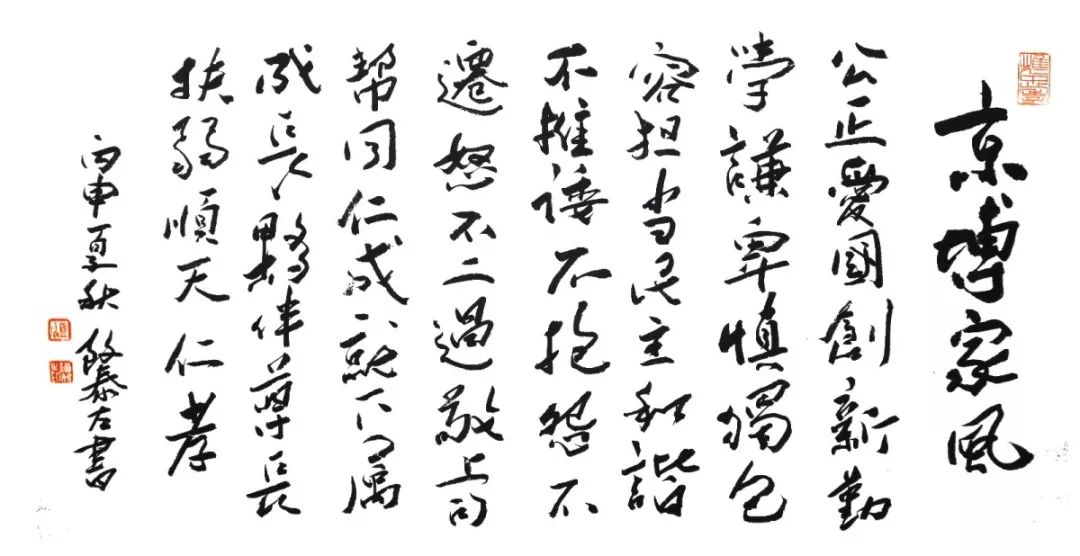 京博家風
公正愛國創新勤
學謙卑慎獨包
容担当民主和諧
不推諉不抱怨不
遷怒不二過敬上司
幫同仁成就下属
成長夥伴尊長
扶弱順天仁孝
丙申夏秋 泰左書